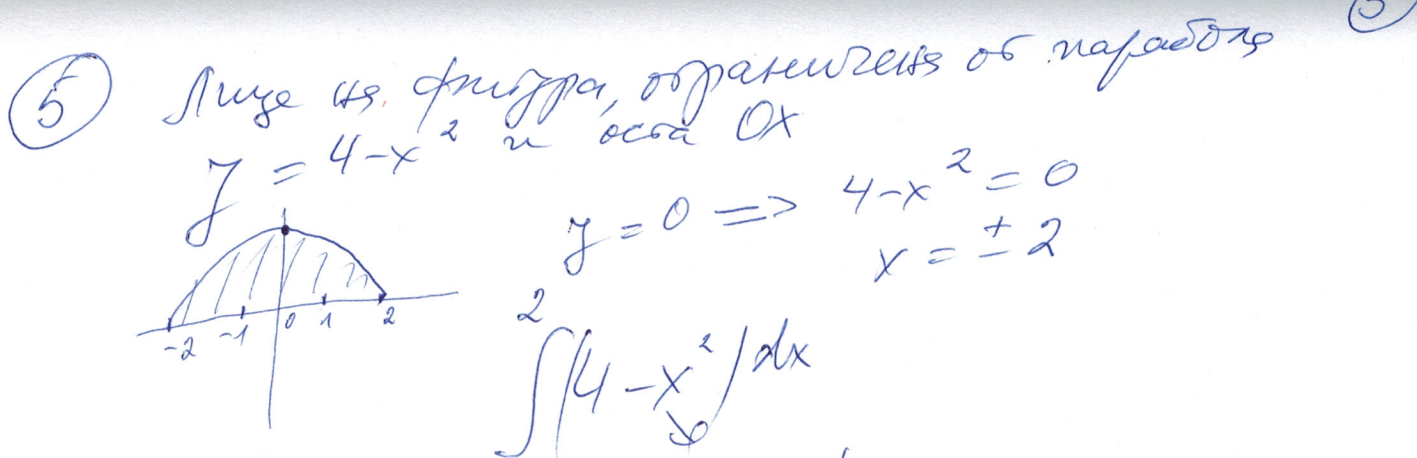 5 Лице на фигура, ограничена от парабола
y = 4-x² и оста OX
y = 0 => 4-x² = 0
x = ± 2
-2 -1 0 1 2
2
∫(4-x²)dx